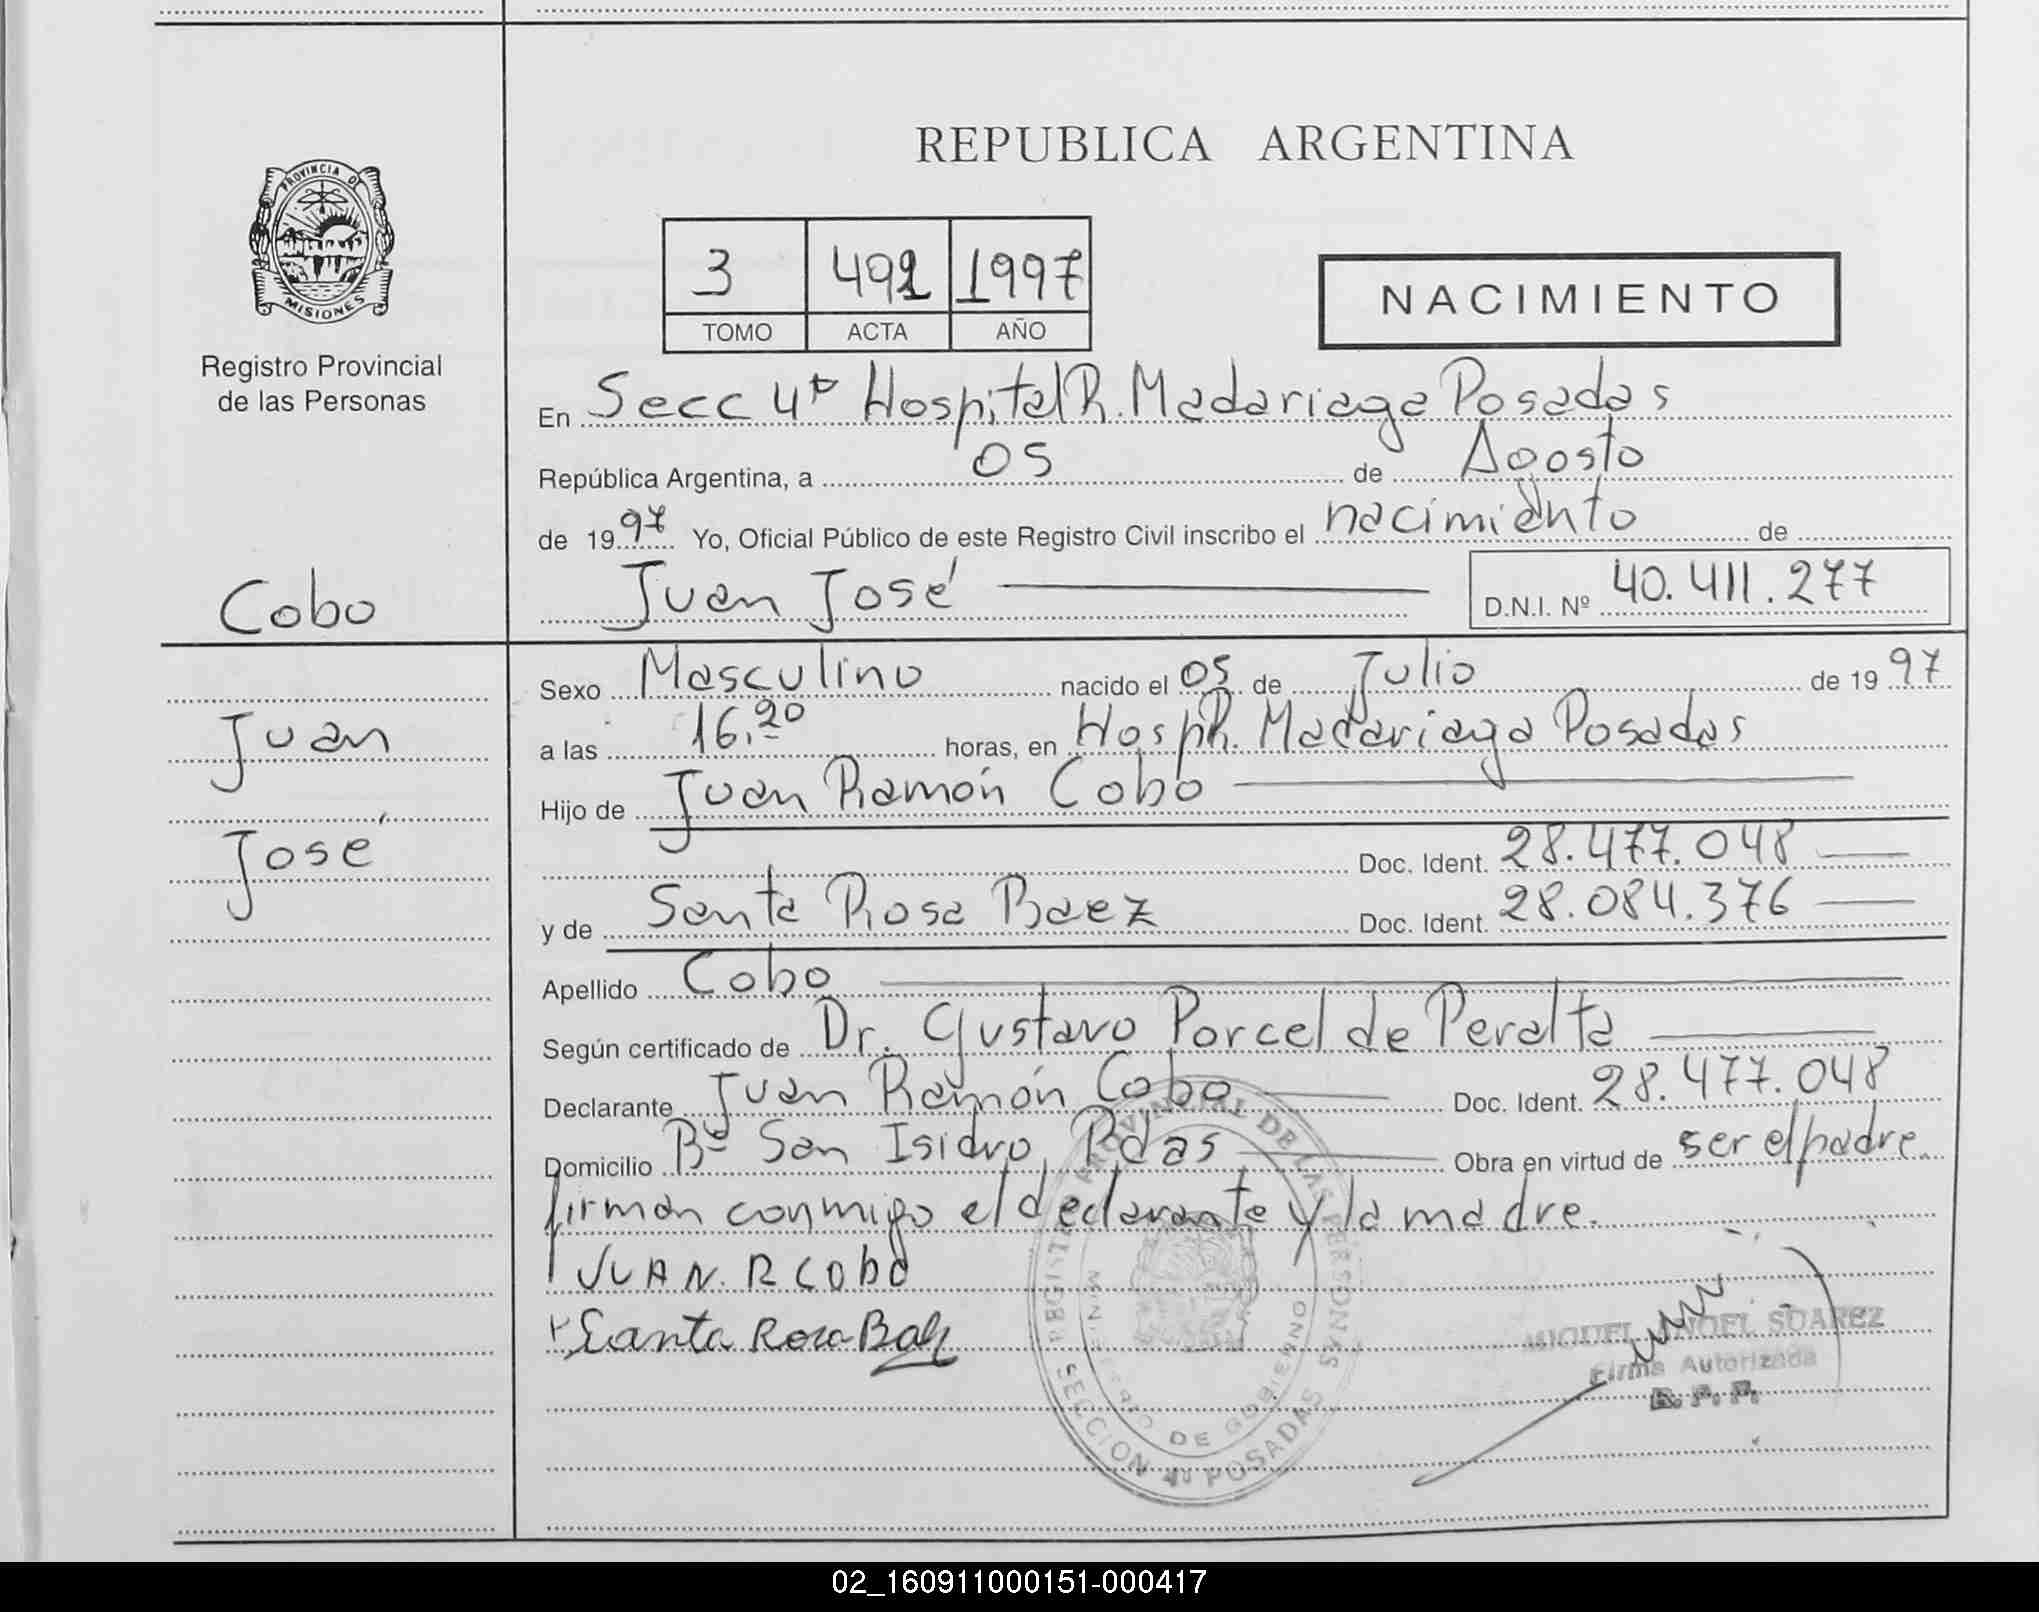 REPUBLICA ARGENTINA
PROVINCIA DE
MISIONES
Registro Provincial
de las Personas
3 492 1997
TOMO ACTA AÑO
NACIMIENTO
En Secc 4ª Hospital R. Madariaga Posadas
República Argentina, a 05 de Agosto
de 1997 Yo, Oficial Público de este Registro Civil inscribo el nacimiento de
Juan José D.N.I. Nº 40.411.277
Cobo
Juan
José
Sexo Masculino nacido el 05 de Julio de 1997
a las 16.20 horas, en Hosp R. Madariaga Posadas
Hijo de Juan Ramón Cobo
Doc. Ident. 28.477.048
y de Santa Rosa Baez Doc. Ident. 28.084.376
Apellido Cobo
Según certificado de Dr. Gustavo Porcel de Peralta
Declarante Juan Ramón Cobo Doc. Ident. 28.477.048
Domicilio Bº San Isidro, Pdas Obra en virtud de ser el padre.
firman conmigo el declarante y la madre.
JUAN. R CObO
Santa Rosa Baez
REGISTRO PROVINCIAL DE LAS PERSONAS
MINISTERIO DE GOBIERNO
SECCION 4ª POSADAS
MIGUEL ANGEL SUAREZ
Firma Autorizada
02_160911000151-000417